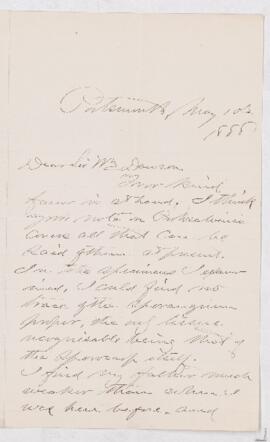 Portsmouth May 10th
1888
Dear Sir Wm Dawson
Your kind
favor is at hand. I think
your note on
cover all that can be
said of them at present.
In the specimens I exam-
ined, I could find no
trace of the sporangium
proper, the only tissue
recognisable being that of
the sporocarp itself.
I find my father much
weaker than when I
was here before and